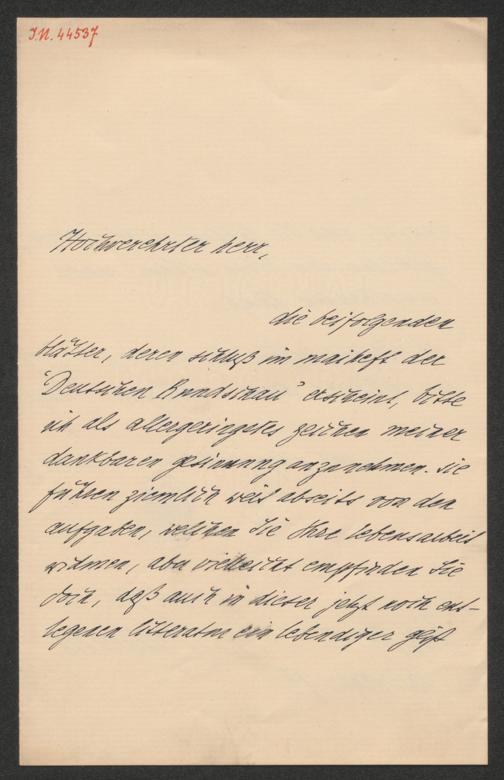 I.N. 44537
Hochverehrter herr,
die beifolgenden
blätter, deren schluß im maiheft der
"Deutschen Rundschau" erscheint, bitte
ich als allergeringstes zeichen meiner
dankbaren gesinnung anzunehmen. sie
führen ziemlich weit abseits von den
aufgaben, welchen Sie Ihre lebensarbeit
widmen, aber vielleicht empfinden Sie
doch, daß auch in dieser jetzt noch ent-
legenen litteratur ein lebendiger geist